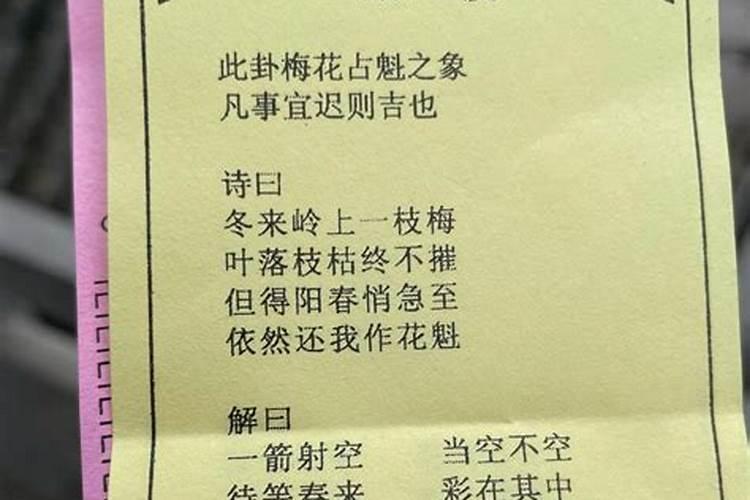 此卦梅花占魁之象
凡事宜迟则吉也
诗曰
冬来岭上一枝梅
叶落枝枯终不摧
但得阳春悄急至
依然还我作花魁
解曰
一箭射空 当空不空
待等春来 彩在其中